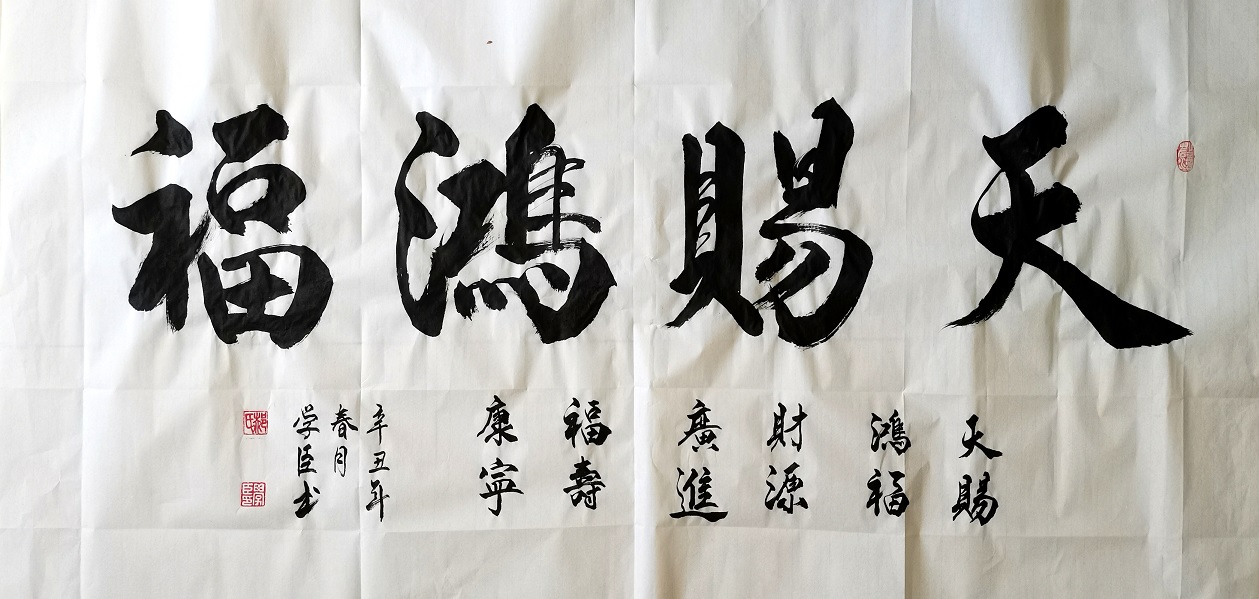 天賜鴻福
天賜
鴻福
財源
廣進
福壽
康寧
辛丑年
春月
学臣书